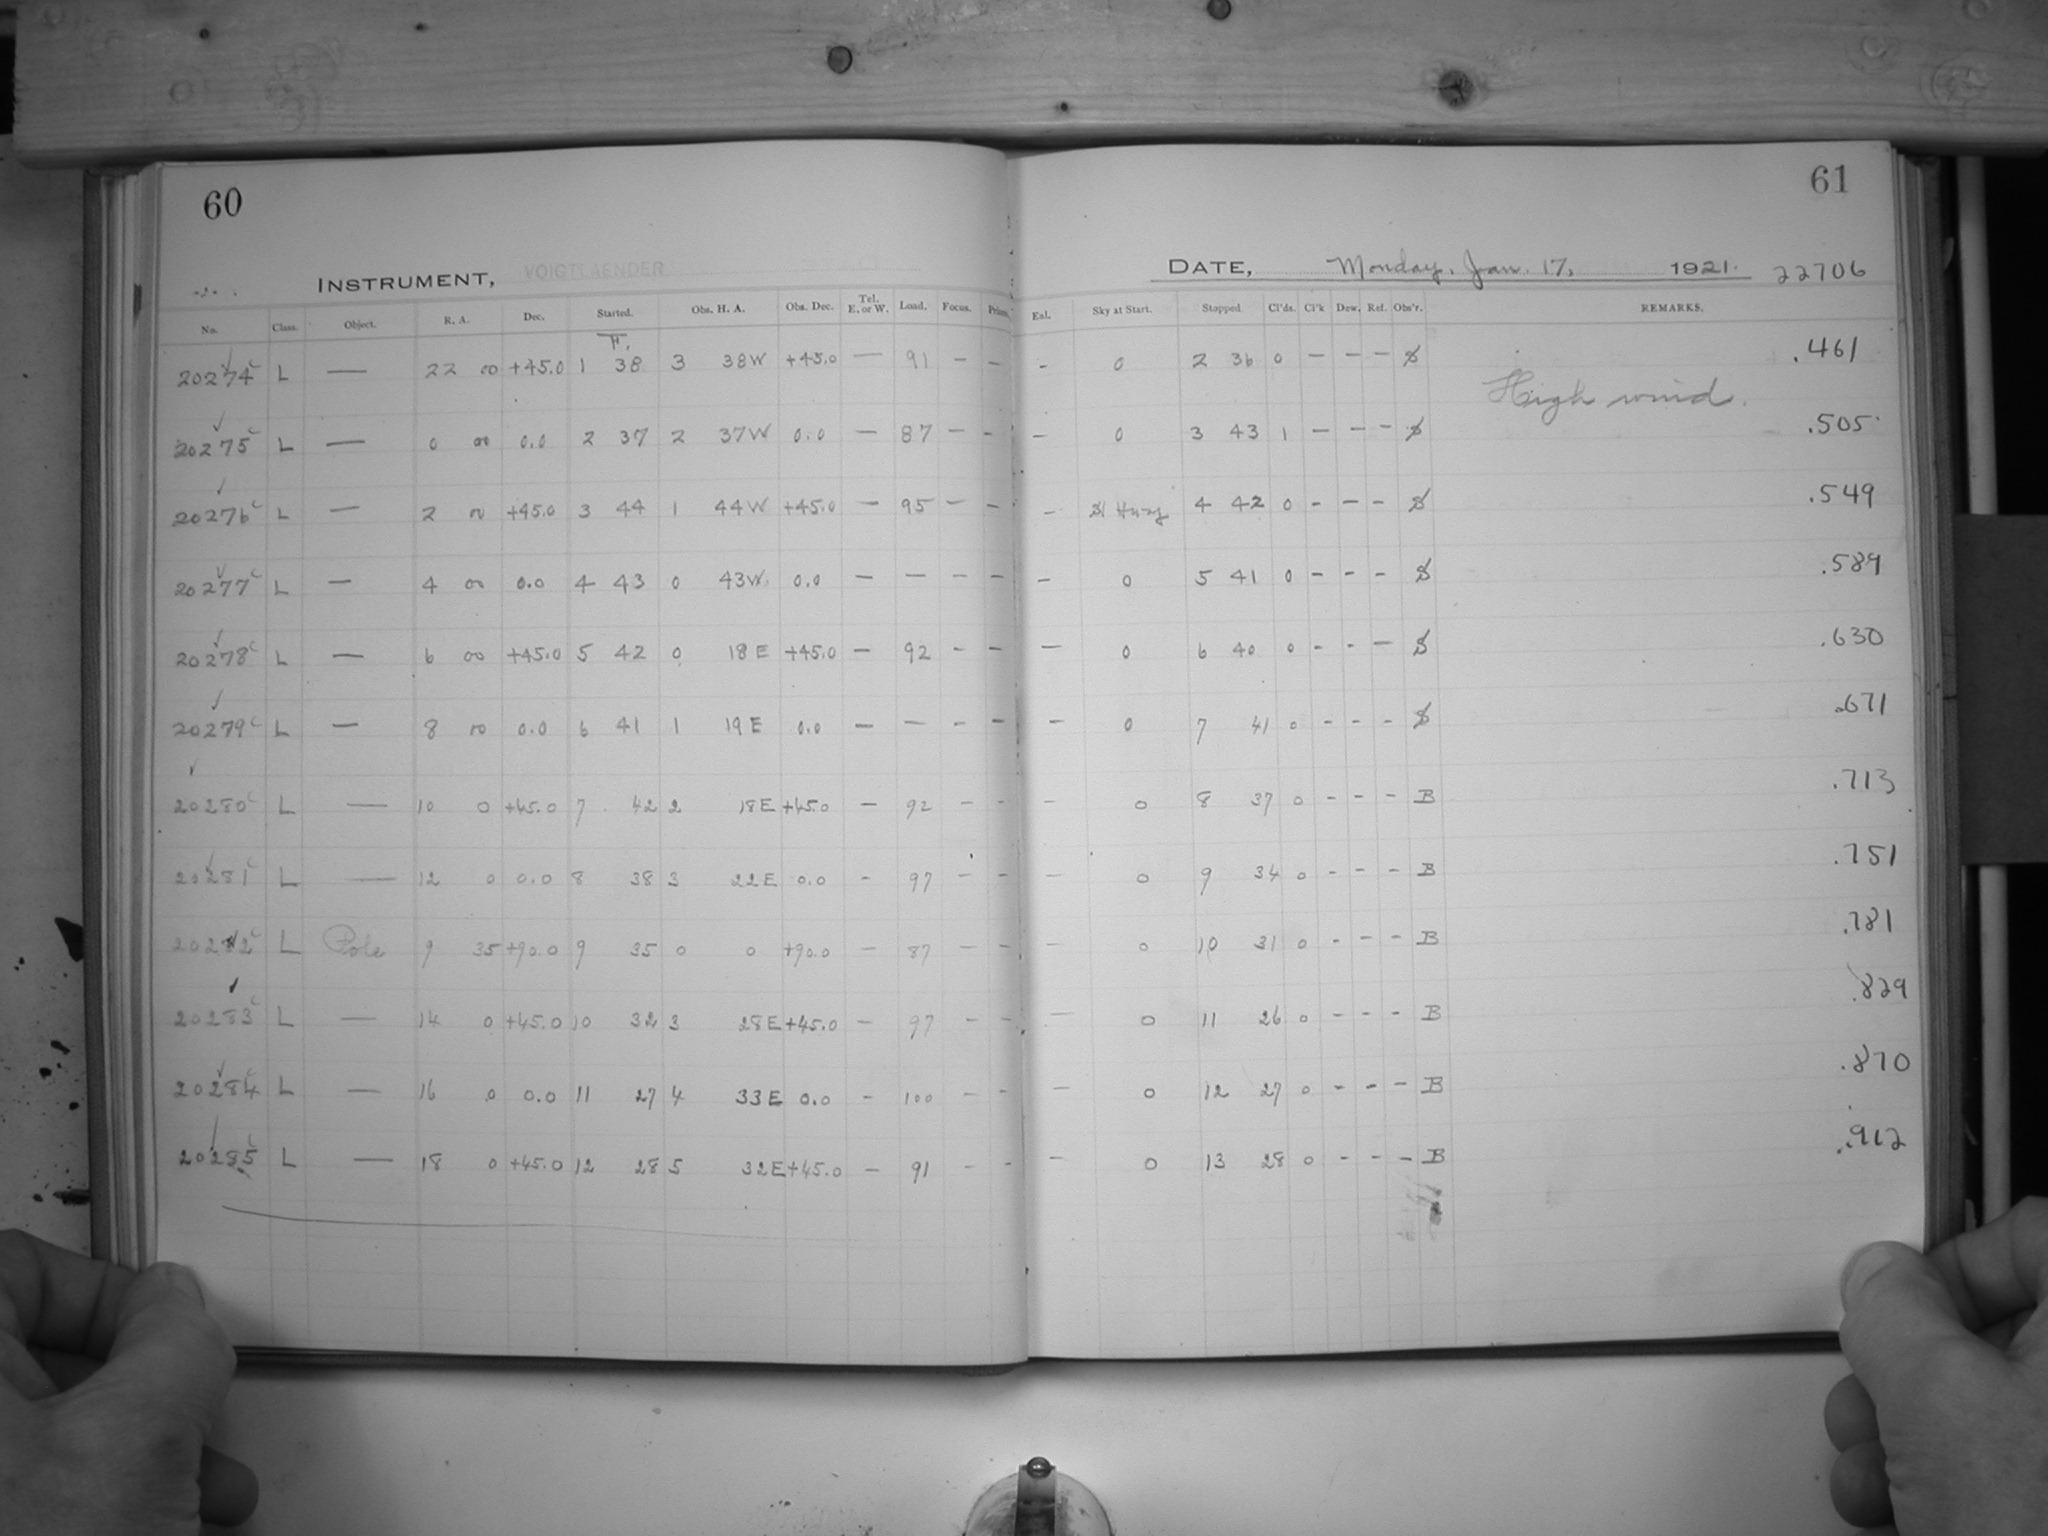 60
INSTRUMENT, VOIGTLAENDER
No. Class. Object. R. A. Dec. Started. Obs. H. A. Obs. Dec. Tel. E. or W. Load. Focus. Prism.
F.
20274 c L — 22 00 +45.0 1 38 3 38W +45.0 — 91 - -
20275 c L — 0 00 0.0 2 37 2 37W 0.0 — 87 - -
20276 c L — 2 00 +45.0 3 44 1 44W +45.0 — 95 - -
20277 c L — 4 00 0.0 4 43 0 43W 0.0 — — - -
20278 c L — 6 00 +45.0 5 42 0 18 E +45.0 — 92 - -
20279 c L — 8 00 0.0 6 41 1 19 E 0.0 — — - -
20280 c L — 10 0 +45.0 7 42 2 18 E +45.0 — 92 - -
20281 c L — 12 0 0.0 8 38 3 22 E 0.0 - 97 - -
20282 c L Pole 9 35 +90.0 9 35 0 0 +90.0 - 87 - -
20283 c L — 14 0 +45.0 10 32 3 28 E +45.0 - 97 - -
20284 c L — 16 0 0.0 11 27 4 33 E 0.0 - 100 - -
20285 c L — 18 0 +45.0 12 28 5 32 E +45.0 - 91 - -
61
DATE, Monday, Jan. 17, 1921. 22706
Eal. Sky at Start. Stopped Cl'ds. Cl'k Dew. Ref. Obs'r. REMARKS.
- 0 2 36 0 - - - S .461
High wind.
- 0 3 43 1 - - - S .505
- Sl Hazy 4 42 0 - - - S .549
- 0 5 41 0 - - - S .589
- 0 6 40 0 - - - S .630
- 0 7 41 0 - - - S .671
- 0 8 37 0 - - - B .713
- 0 9 34 0 - - - B .751
- 0 10 31 0 - - - B .781
- 0 11 26 0 - - - B .829
- 0 12 27 0 - - - B .870
- 0 13 28 0 - - - B .912